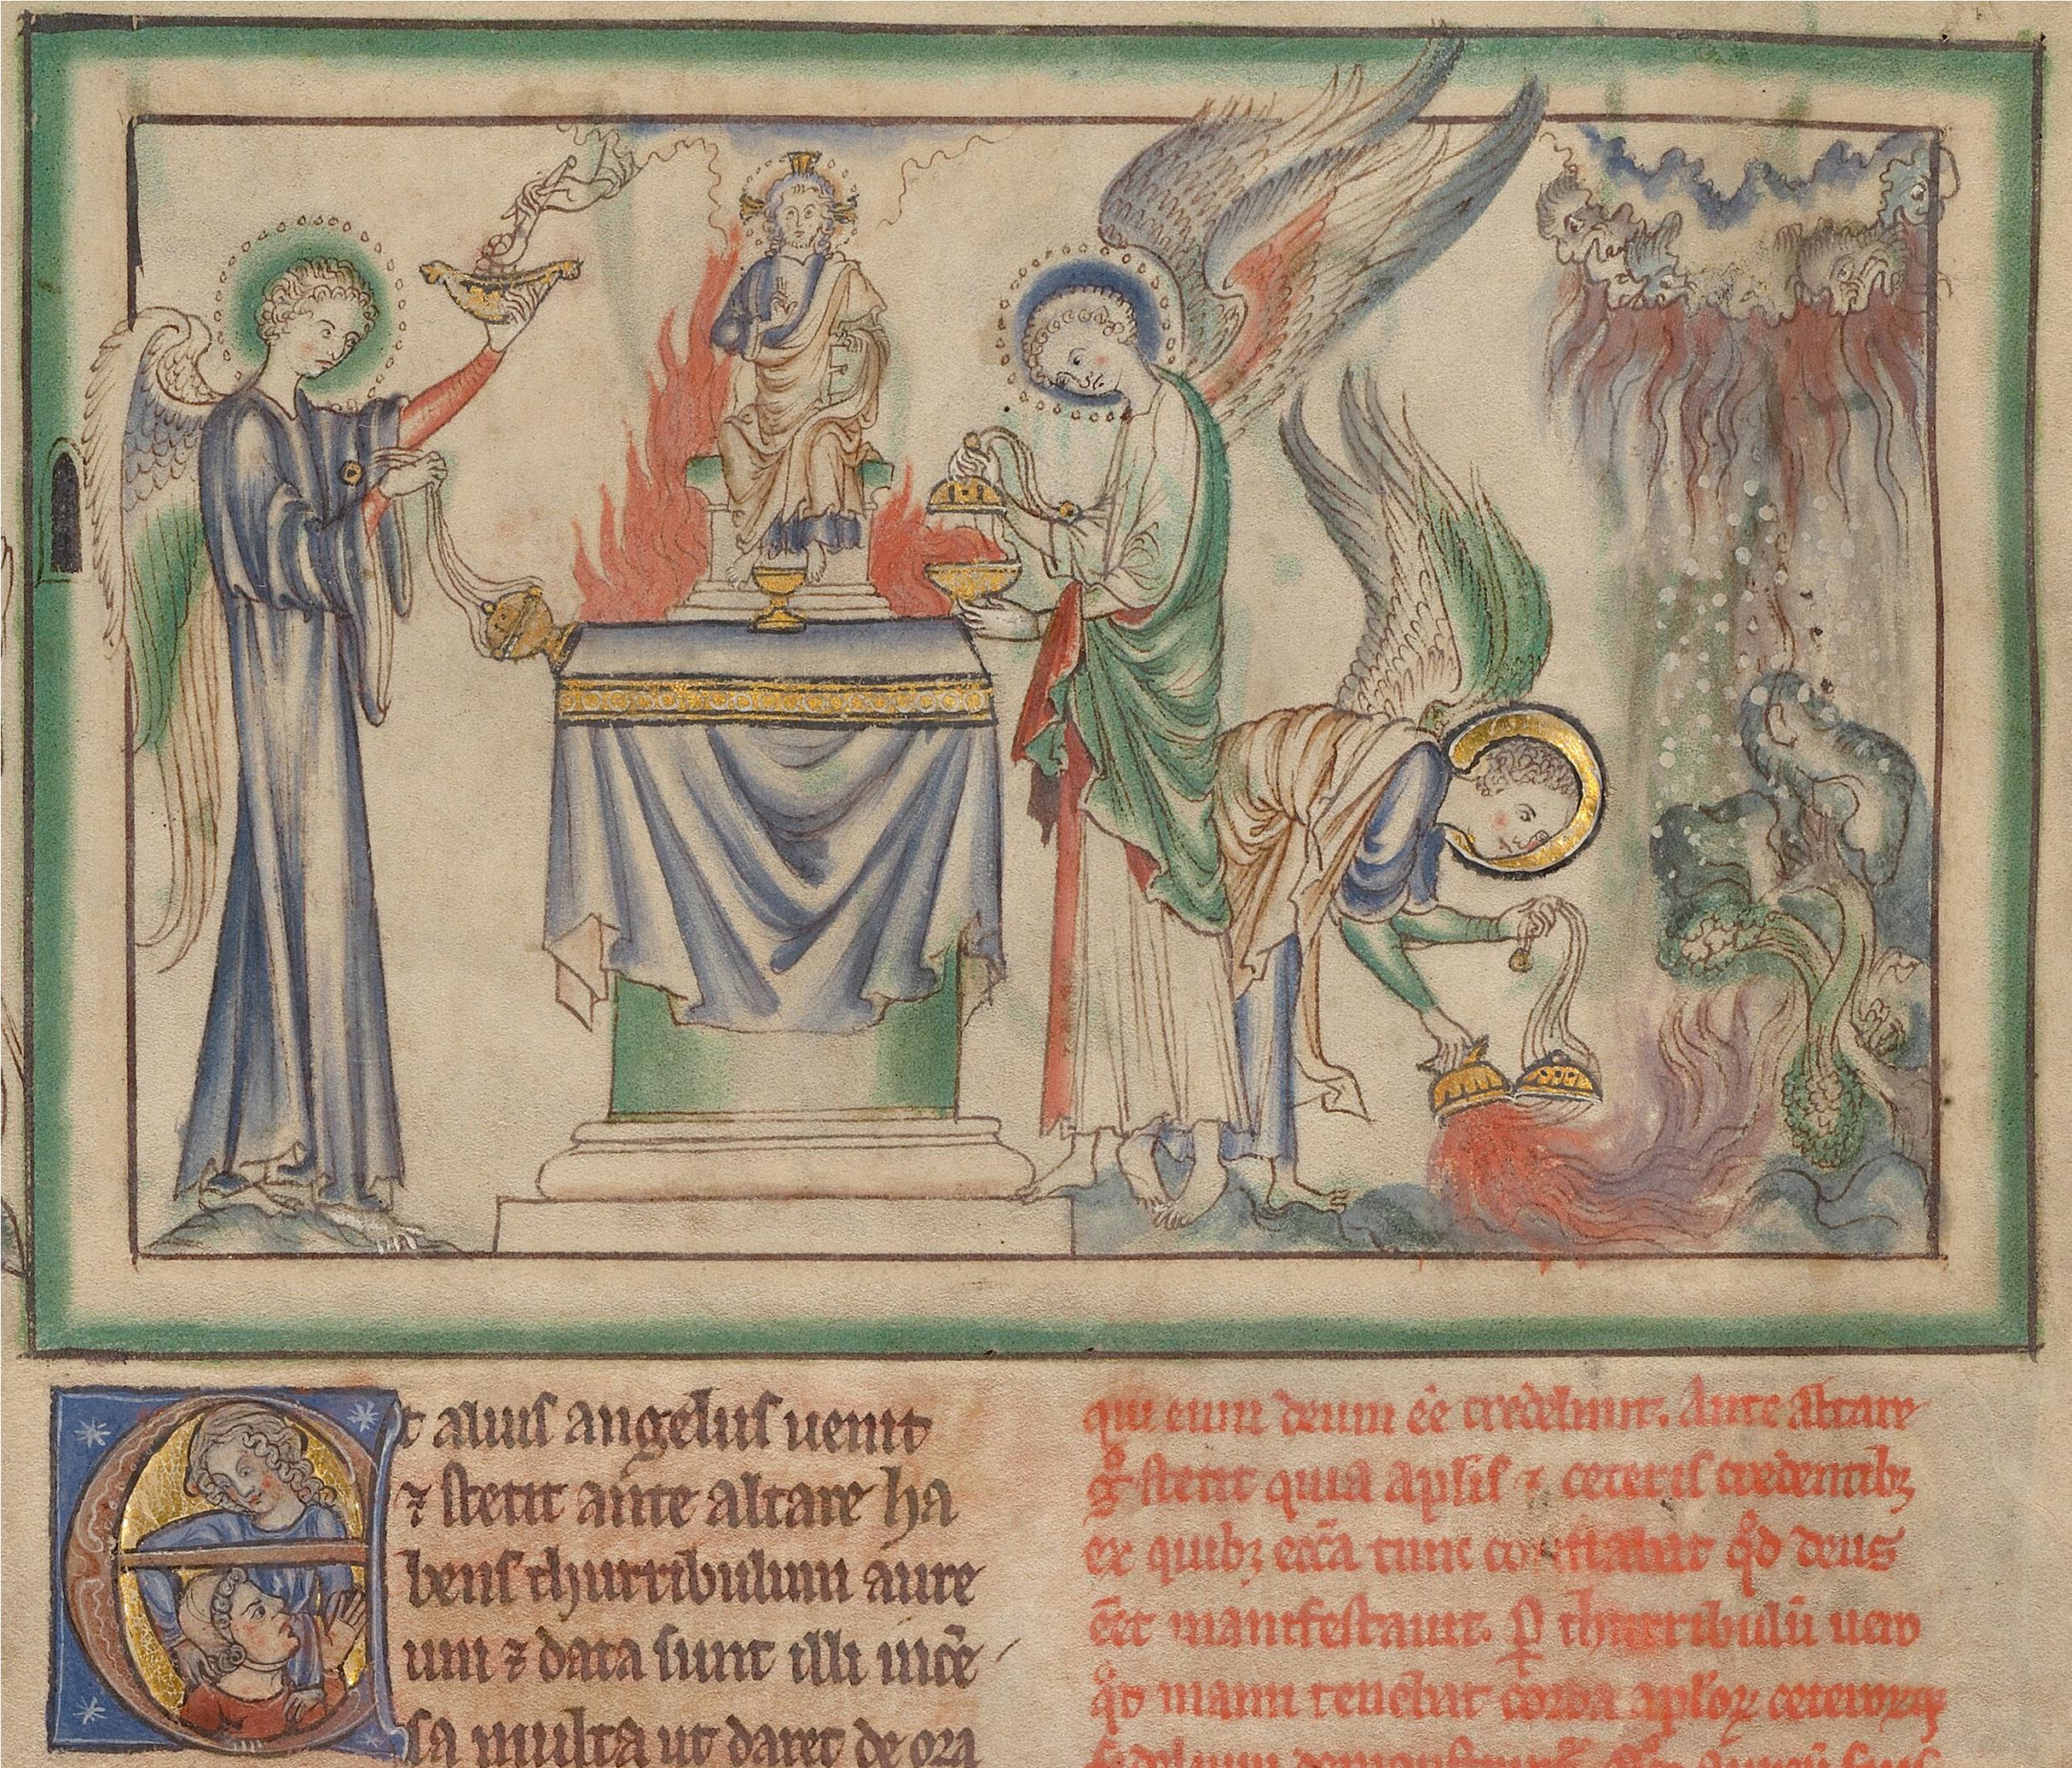 Et alius angelus uenit
⁊ stetit ante altare ha
bens thurribulum aure
um ⁊ data sunt illi incē
sa multa ut daret de ora
qui eum deum eē credeb̄nt. Ante altare
gͦ stetit quia apl̄is ⁊ ceteris credentibꝫ
ex quibꝫ ecc̄a tunc constabat qͦd deus
ēēt manifestauit. Ꝑ thurribulū uero
qͦd manu teneb̄at corda apl̄oꝝ ceteroꝝqꝫ